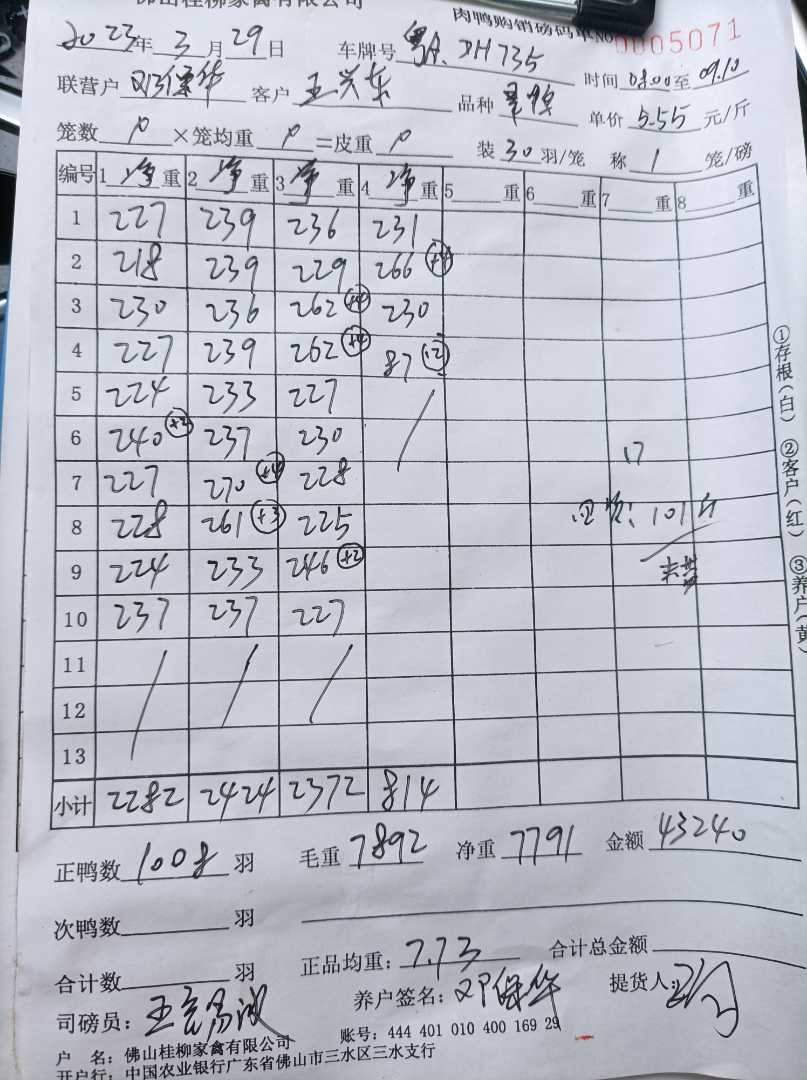 佛山桂柳家禽有限公司
肉鸭购销磅码单 NO 0005071
2023年 3月 29日 车牌号 粤A.DH735
联营户 邓保华 客户 王兴东 品种 时间 0800至 09.10
单价 5.55 元/斤
笼数 0 ×笼均重 0 =皮重 0 装 30 羽/笼 称 1 笼/磅
编号 1 净 重 2 净 重 3 净 重 4 净 重 5 重 6 重 7 重 8 重
1 227 239 236 231
2 218 239 229 266 +4
3 230 236 262 +4 230
4 227 239 262 +4 87 12
5 224 233 227 /
6 240 +2 237 230
7 227 270 +4 228 17
8 228 261 +3 225 101斤
9 224 233 246 +2
10 237 237 227
11 / / /
12
13
小计 2282 2424 2372 814
正鸭数 1008 羽 毛重 7892 净重 7791 金额 43240
次鸭数 羽
合计数 羽 正品均重: 7.73 合计总金额
司磅员: 养户签名: 邓保华 提货人:
户 名: 佛山桂柳家禽有限公司 账号: 444 401 010 400 169 29
开户行: 中国农业银行广东省佛山市三水区三水支行
①存根(白) ②客户(红) ③养户(黄)